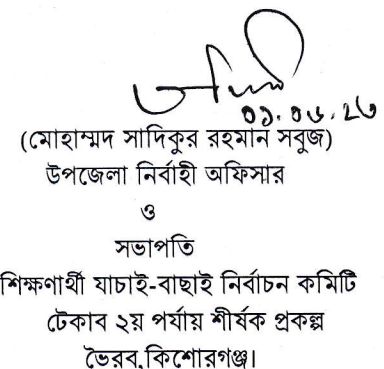 (মোহাম্মদ সাদিকুর রহমান সবুজ)
উপজেলা নির্বাহী অফিসার
ও
সভাপতি
শিক্ষণার্থী যাচাই-বাছাই নির্বাচন কমিটি
টেকাব ২য় পর্যায় শীর্ষক প্রকল্প
ভৈরব,কিশোরগঞ্জ।